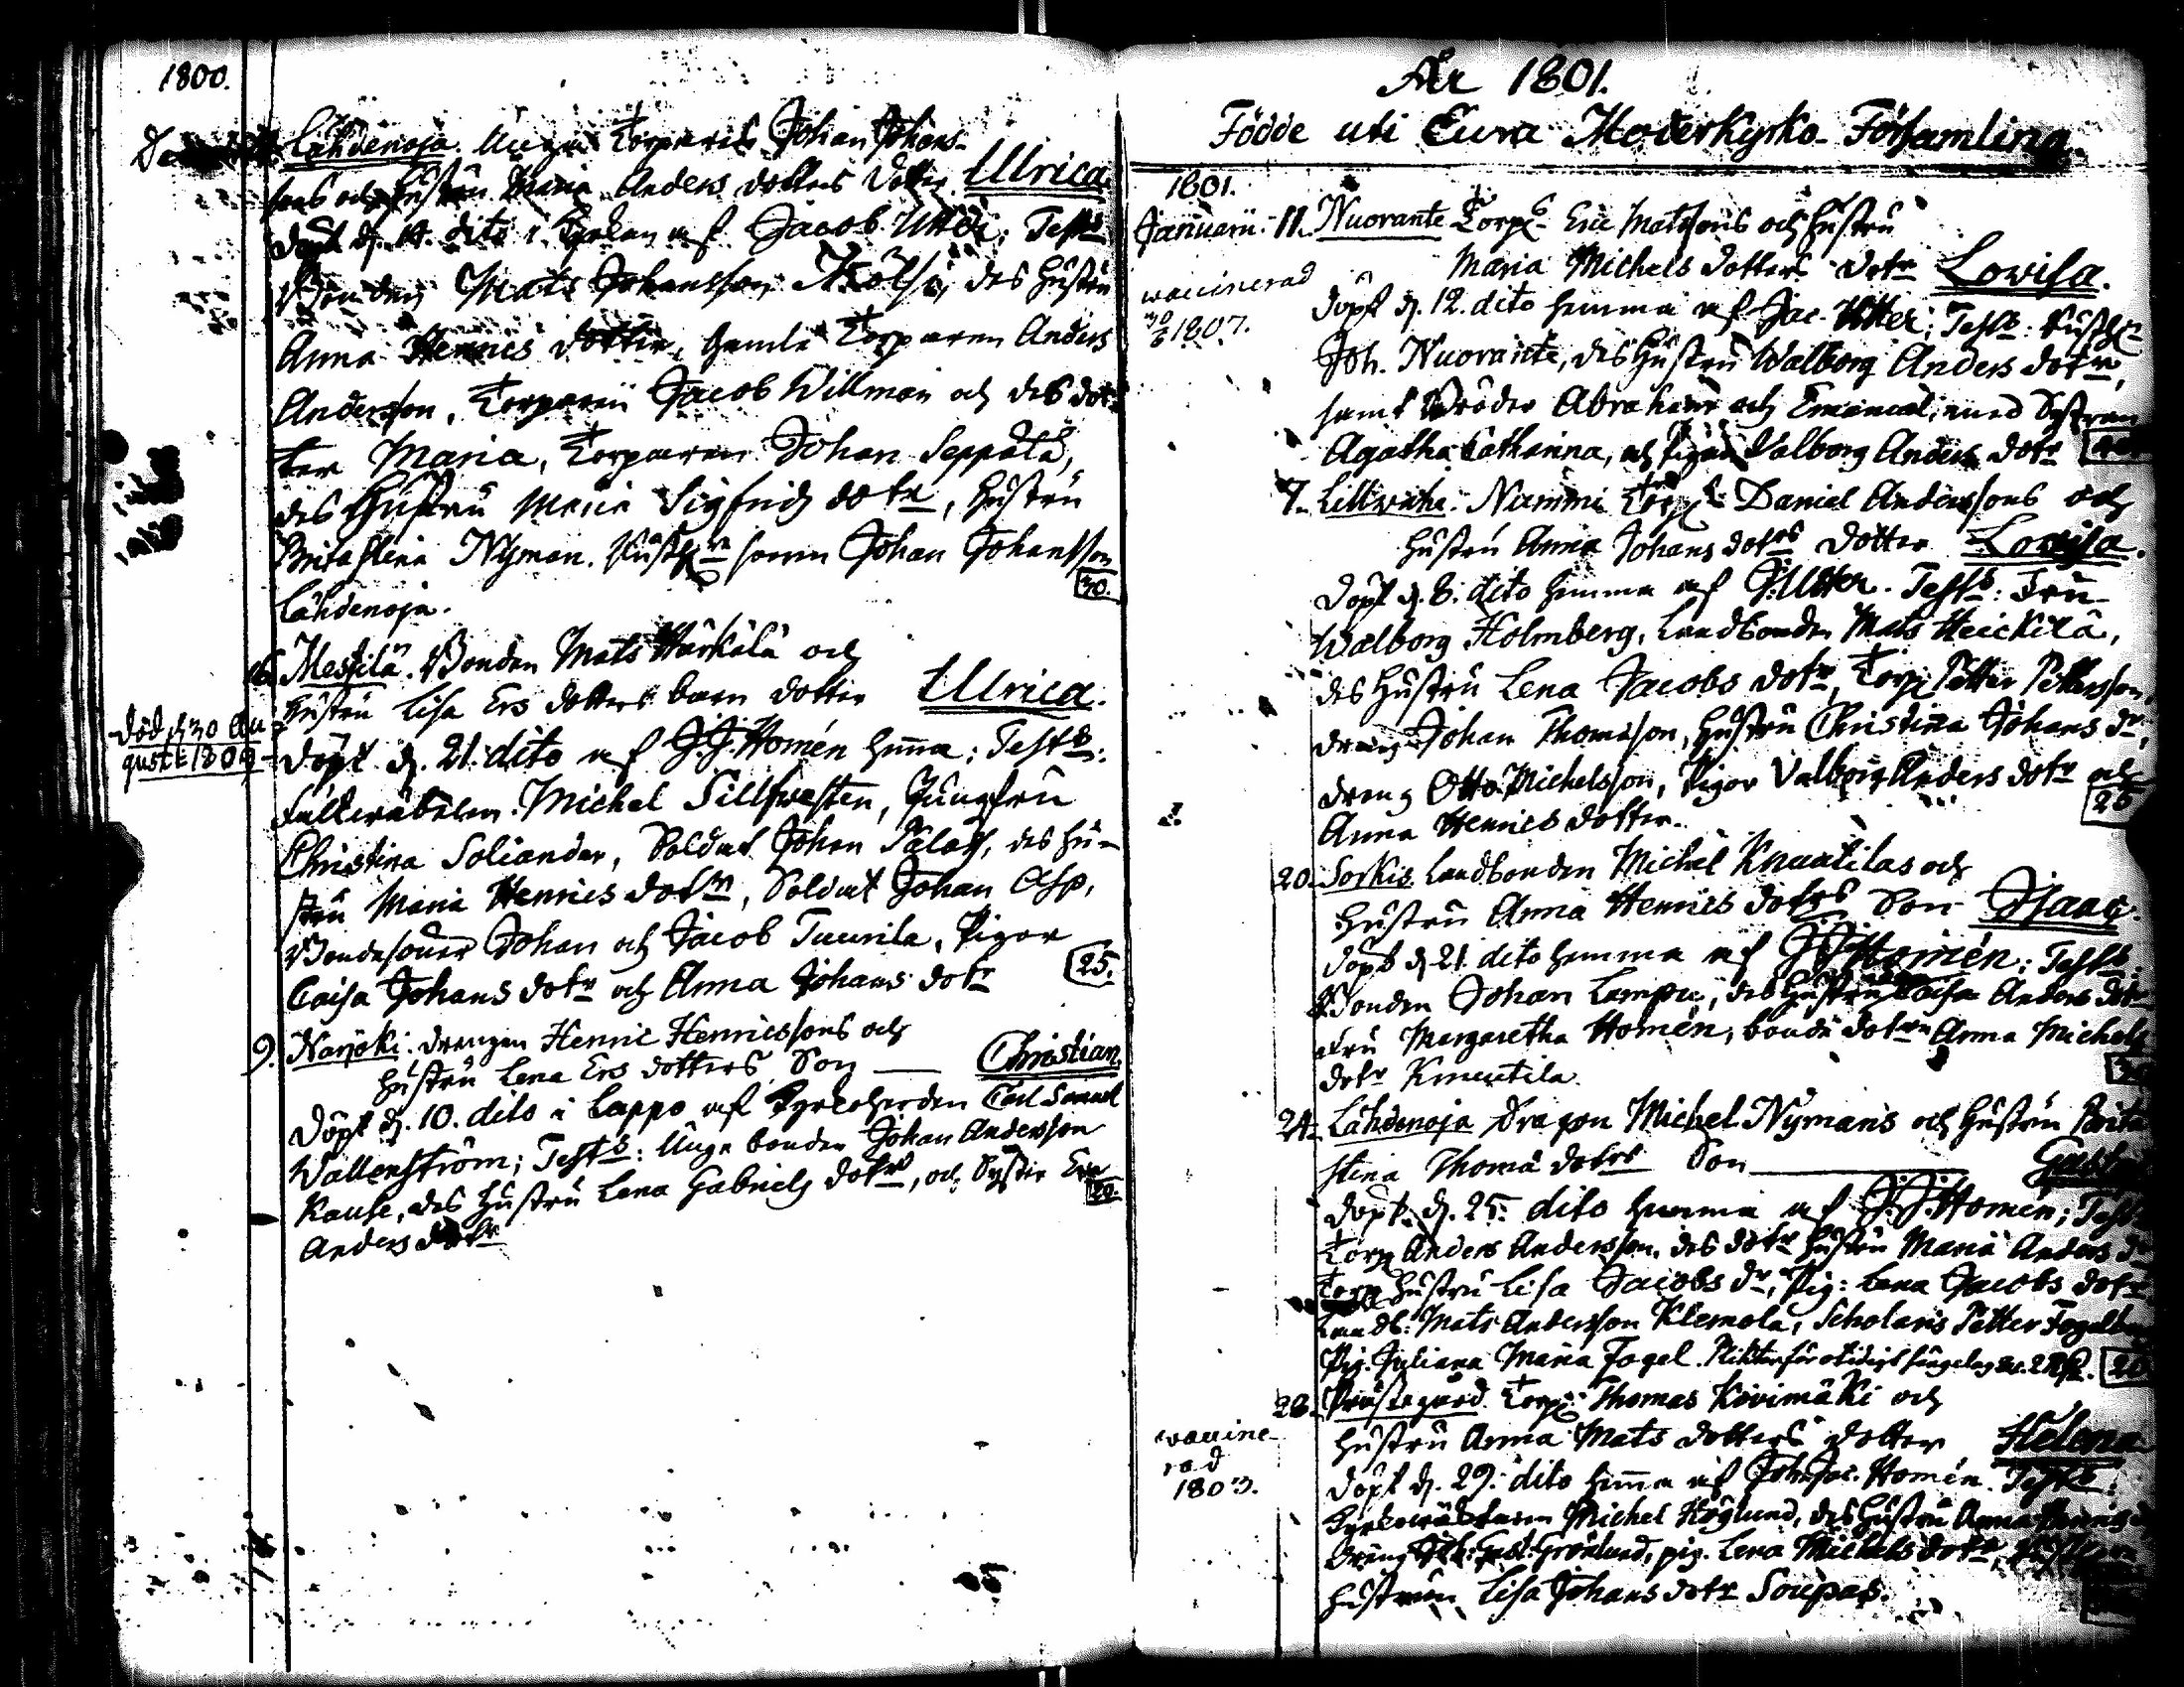 1800.
Lähdenoja. Unga Torparen Johan Johans-
sons och hustru Maria Anders dotters Dotter Ulrica.
Döpt d. 14. dito i Kyrkan af Jacob Utter; Test:s
Bonden Mats Johansson Kölsi, des hustru
Anna Henrics dotter, Gamla Torparen Anders
Andersson, Torparen Jacob Willman och des dot-
ter Maria, Torparen Johan Seppälä,
des Hustru Maria Sigfrids dotr, hustru
Brita Stina Nyman. sonen Johan Johansson
Lähdenoja. 30.
16. Mestilä. Bonden Mats Härkälä och
hustru Lisa Ers dotters barn dotter Ulrica.
död d 30 Au
gusti 1809
Döpt d. 21. dito af J.J. Homén hema; Test:s:
Fältwäbelen Michel Sillfwesten, Jungfru
Christina Soliander, Soldat Johan Palas, des hu-
stru Maria Henrics dotr, Soldat Johan Asp,
Bondesöner Johan och Jacob Tuurila, Pigor
Caisa Johans dotr och Anna Johans dotr 25.
9. Narjöki. Drengen Henric Henricssons och
hustru Lena Ers dotters Son — Christian.
Döpt d. 10. dito i Lappo af Kyrkoherden Carl Samuel
Wallenström; Test:s: Unga bonden Johan Andersson
Kause, des hustru Lena Gabriels dotr, och Syster
Anders dotr
År 1801.
Födde uti Eura Moderkyrko-Församling.
1801.
Januarii. 11. Nuorante Torp:s Eric Matssons och hustru
Maria Michels dotters dotr Lovisa.
waccinerad
1807.
Döpt d. 12. dito hemma af Jac. Utter; Test:s:
Joh. Nuorante, des hustru Walborg Anders dotr,
samt Bröder Abraham och Emanuel, med Systran
Agatha Catharina, och Pigan Valborg Anders dotr
7. Lillwahe. Nummi Torp:s Daniel Anderssons och
hustru Anna Johans dotrs dotter Lovisa.
Döpt d. 8. dito hemma af J. Utter. Test:s: Fru
Walborg Holmberg, Landbonden Mats Heickilä,
des hustru Lena Jacobs dotr, Torp: Petter Pettersson,
dreng Johan Thomasson, hustru Christina Johans dr,
dreng Otto Michelsson, Pigor Valborg Anders dotr och
Anna Henrics dotter. 25
20. Sorkis Landbonden Michel Knuutilas och
hustru Anna Henrics dotrs Son Isaac.
Döpt d. 21. dito hemma af J.J. Homén; Test:s:
Bonden Johan Lampu, des hustru Caisa Anders dotr
Fru Margaretha Homén, bonde dotrn Anna Michels
dotr Knuutila.
24. Lähdenoja Dragon Michel Nymans och hustru Brita
Stina Thomä dotrs Son — Gustav
Döpt d. 25. dito hemma af J.J. Homén; Test:s
Torp: Anders Andersson, des dotr hustru Maria Anders dr
Torp: hustru Lisa Jacobs dr, Pig: Lena Jacobs dotr
Landb: Mats Andersson Klemola, Scholaris Petter
Pig. Juliana Maria Fogel.
28. Prästegård. Torp: Thomas Kovimäki och
hustru Anna Mats dotters dotter Helena
waccine-
rad
1803.
Döpt d. 29. dito hema af Joh. Jac. Homén. Test:s:
Kyrkowäktaren Michel Höglund, des hustru Anna
dreng Gust: Grönlund, pig. Lena Michels dotr,
hustrun Lisa Johans dotr Soupas.